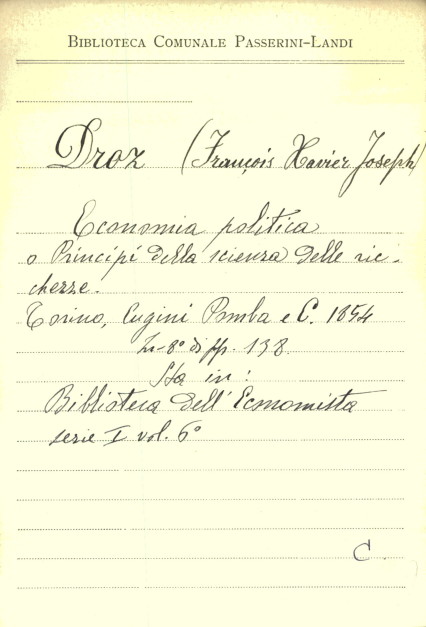 BIBLIOTECA COMUNALE PASSERINI-LANDI
Droz (François Xavier Joseph)
Economia politica
o Principî della scienza delle ric-
chezze.
Torino, Cugini Pomba e C. 1854
In-8° di pp. 138
Sta in:
Biblioteca dell'Economista
serie I vol. 6°
C